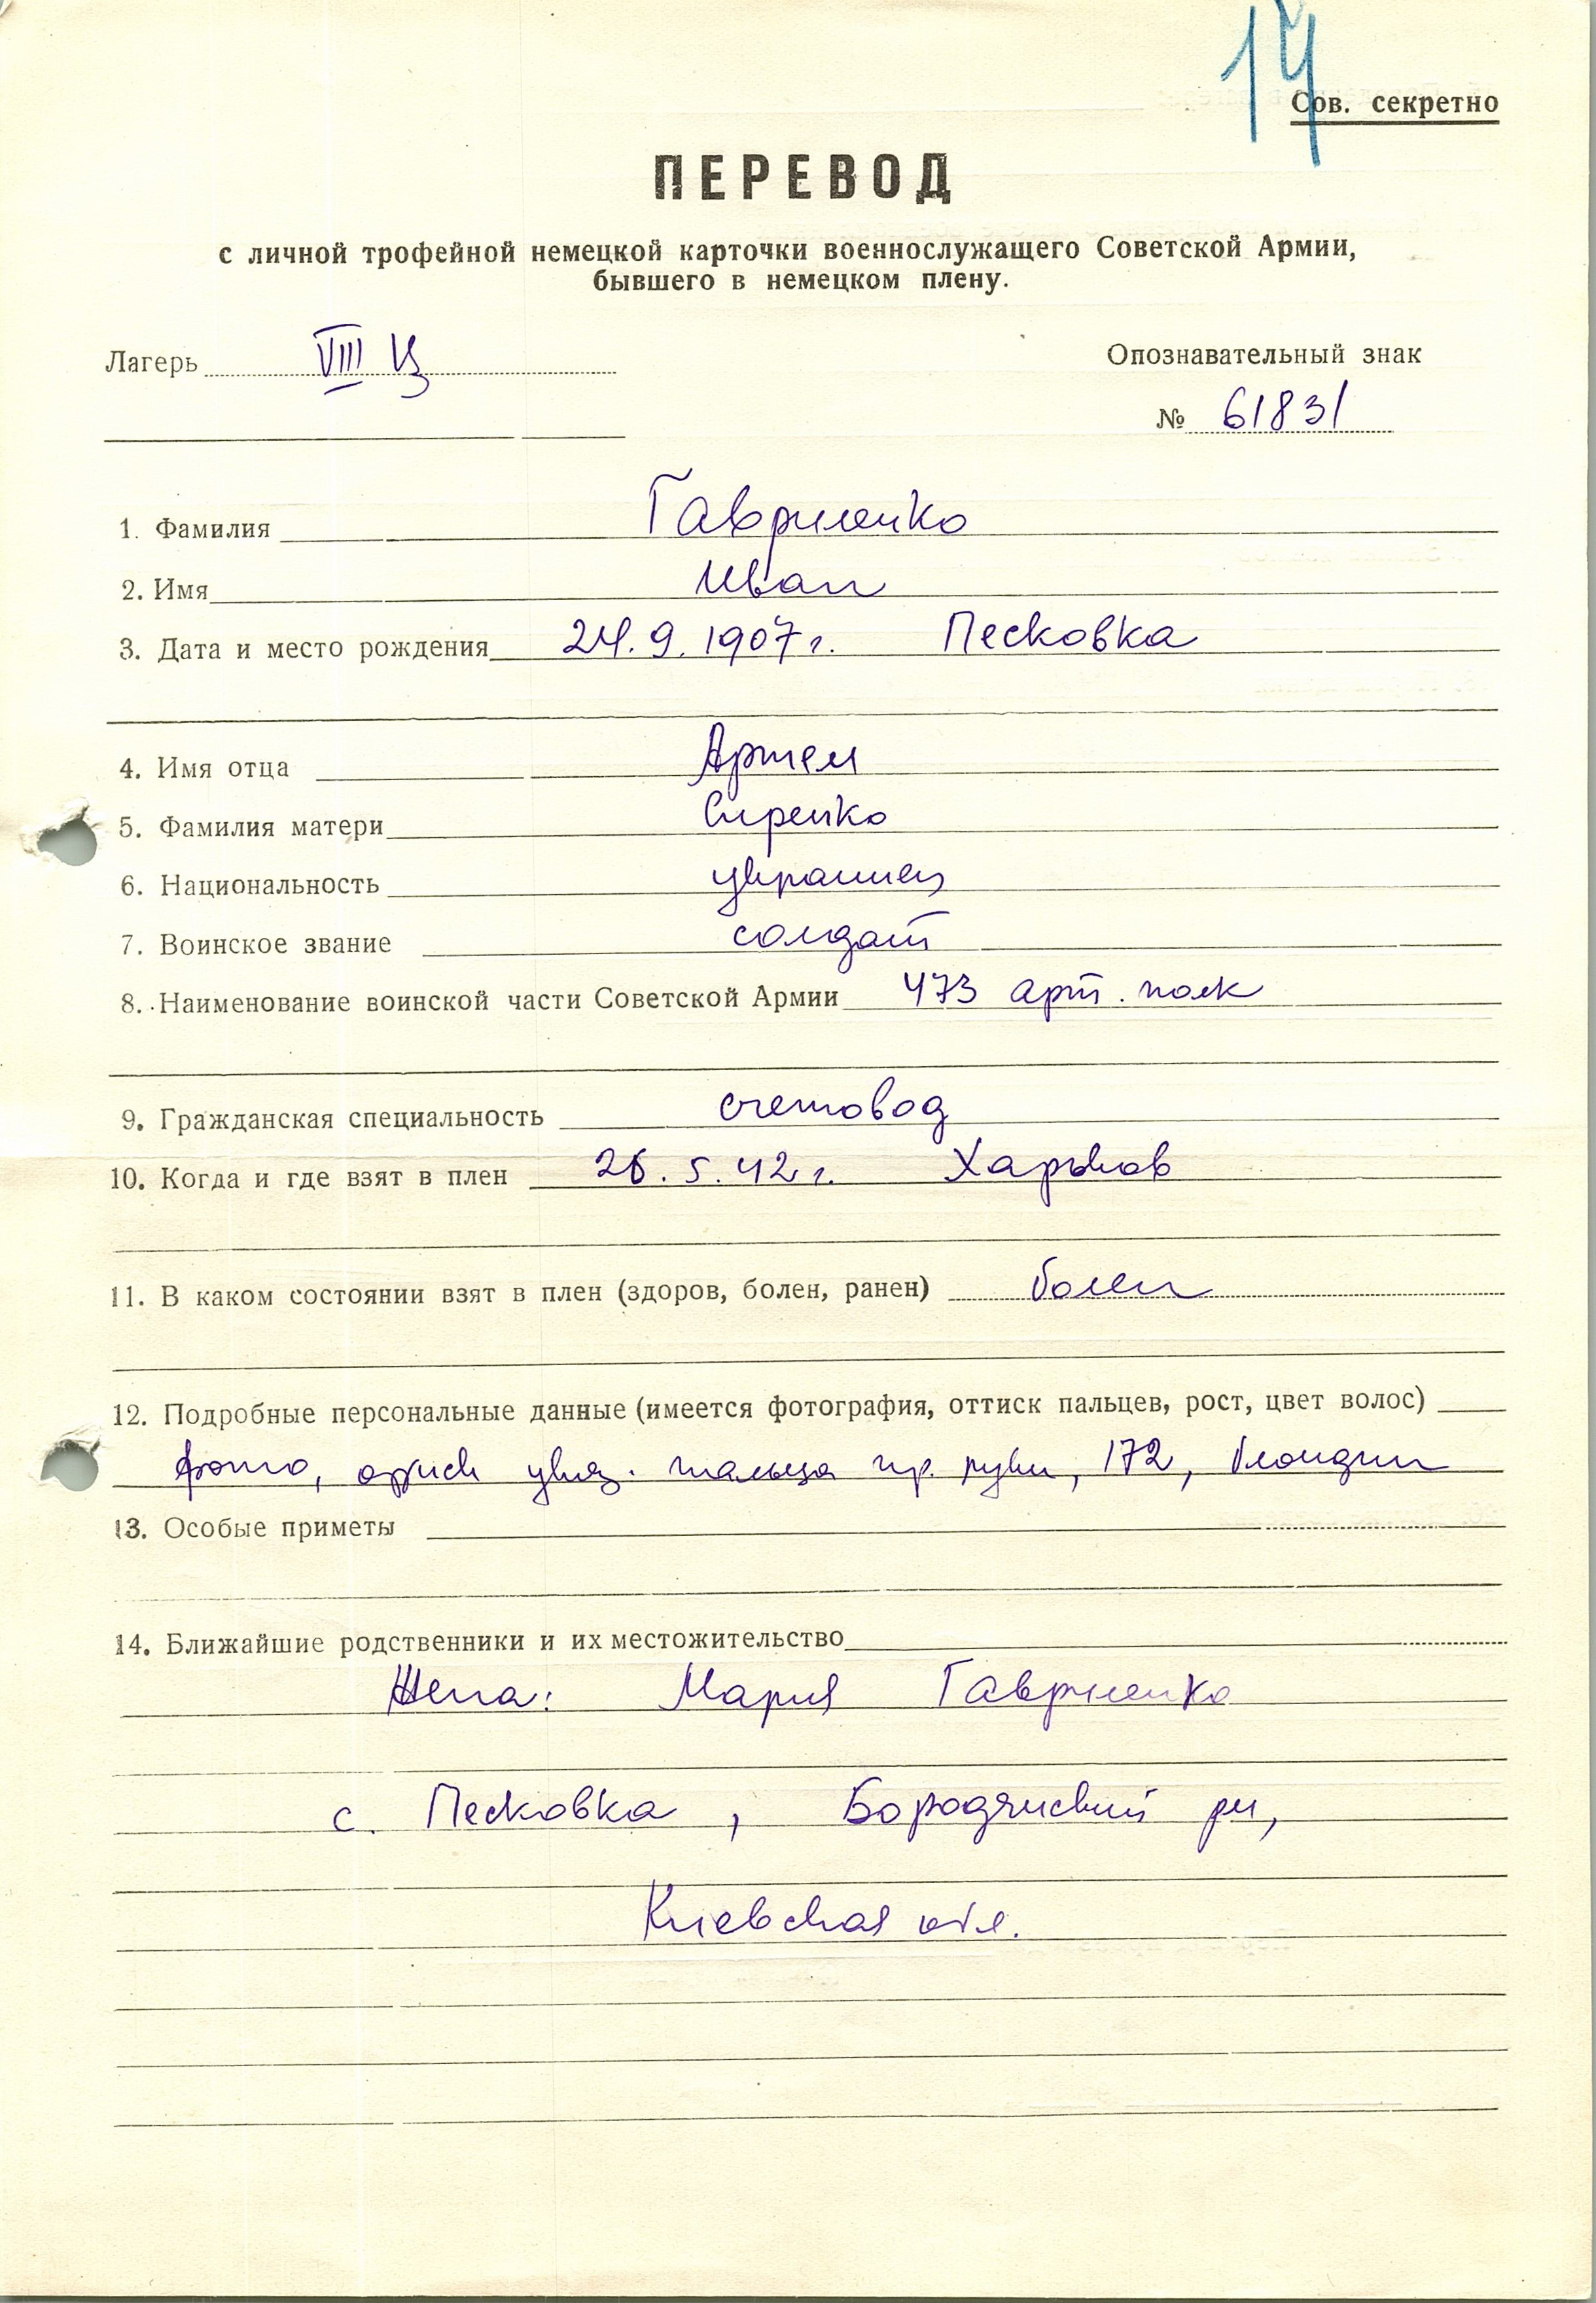 14
Сов. секретно
ПЕРЕВОД
с личной трофейной немецкой карточки военнослужащего Советской Армии,
бывшего в немецком плену.
Лагерь VIII Ц
Опознавательный знак
№ 61831
1. Фамилия Гавриленко
2. Имя Иван
3. Дата и место рождения 24.9.1907 г. Песковка
4. Имя отца Артем
5. Фамилия матери Сиренко
6. Национальность украинец
7. Воинское звание солдат
8. Наименование воинской части Советской Армии 473 арт. полк
9. Гражданская специальность счетовод
10. Когда и где взят в плен 26.5.42 г. Харьков
11. В каком состоянии взят в плен (здоров, болен, ранен) болен
12. Подробные персональные данные (имеется фотография, оттиск пальцев, рост, цвет волос)
фото, указ. пальца пр. руки, 172, блондин
13. Особые приметы
14. Ближайшие родственники и их местожительство
Жена: Мария Гавриленко
с. Песковка, Бородянский рн,
Киевская обл.